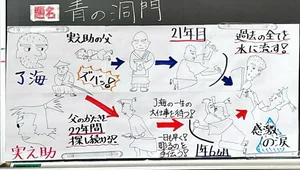 題名
青の洞門
実之助の父
21年目
過去の全てを
水に流す!
でし
了海
父のかたきを
27年間
探し続ける?
了海の一生の
大仕事を待つ?
一日も早く?
彫るのを
手伝う?
1年6ヵ月
感激
の涙
実之助